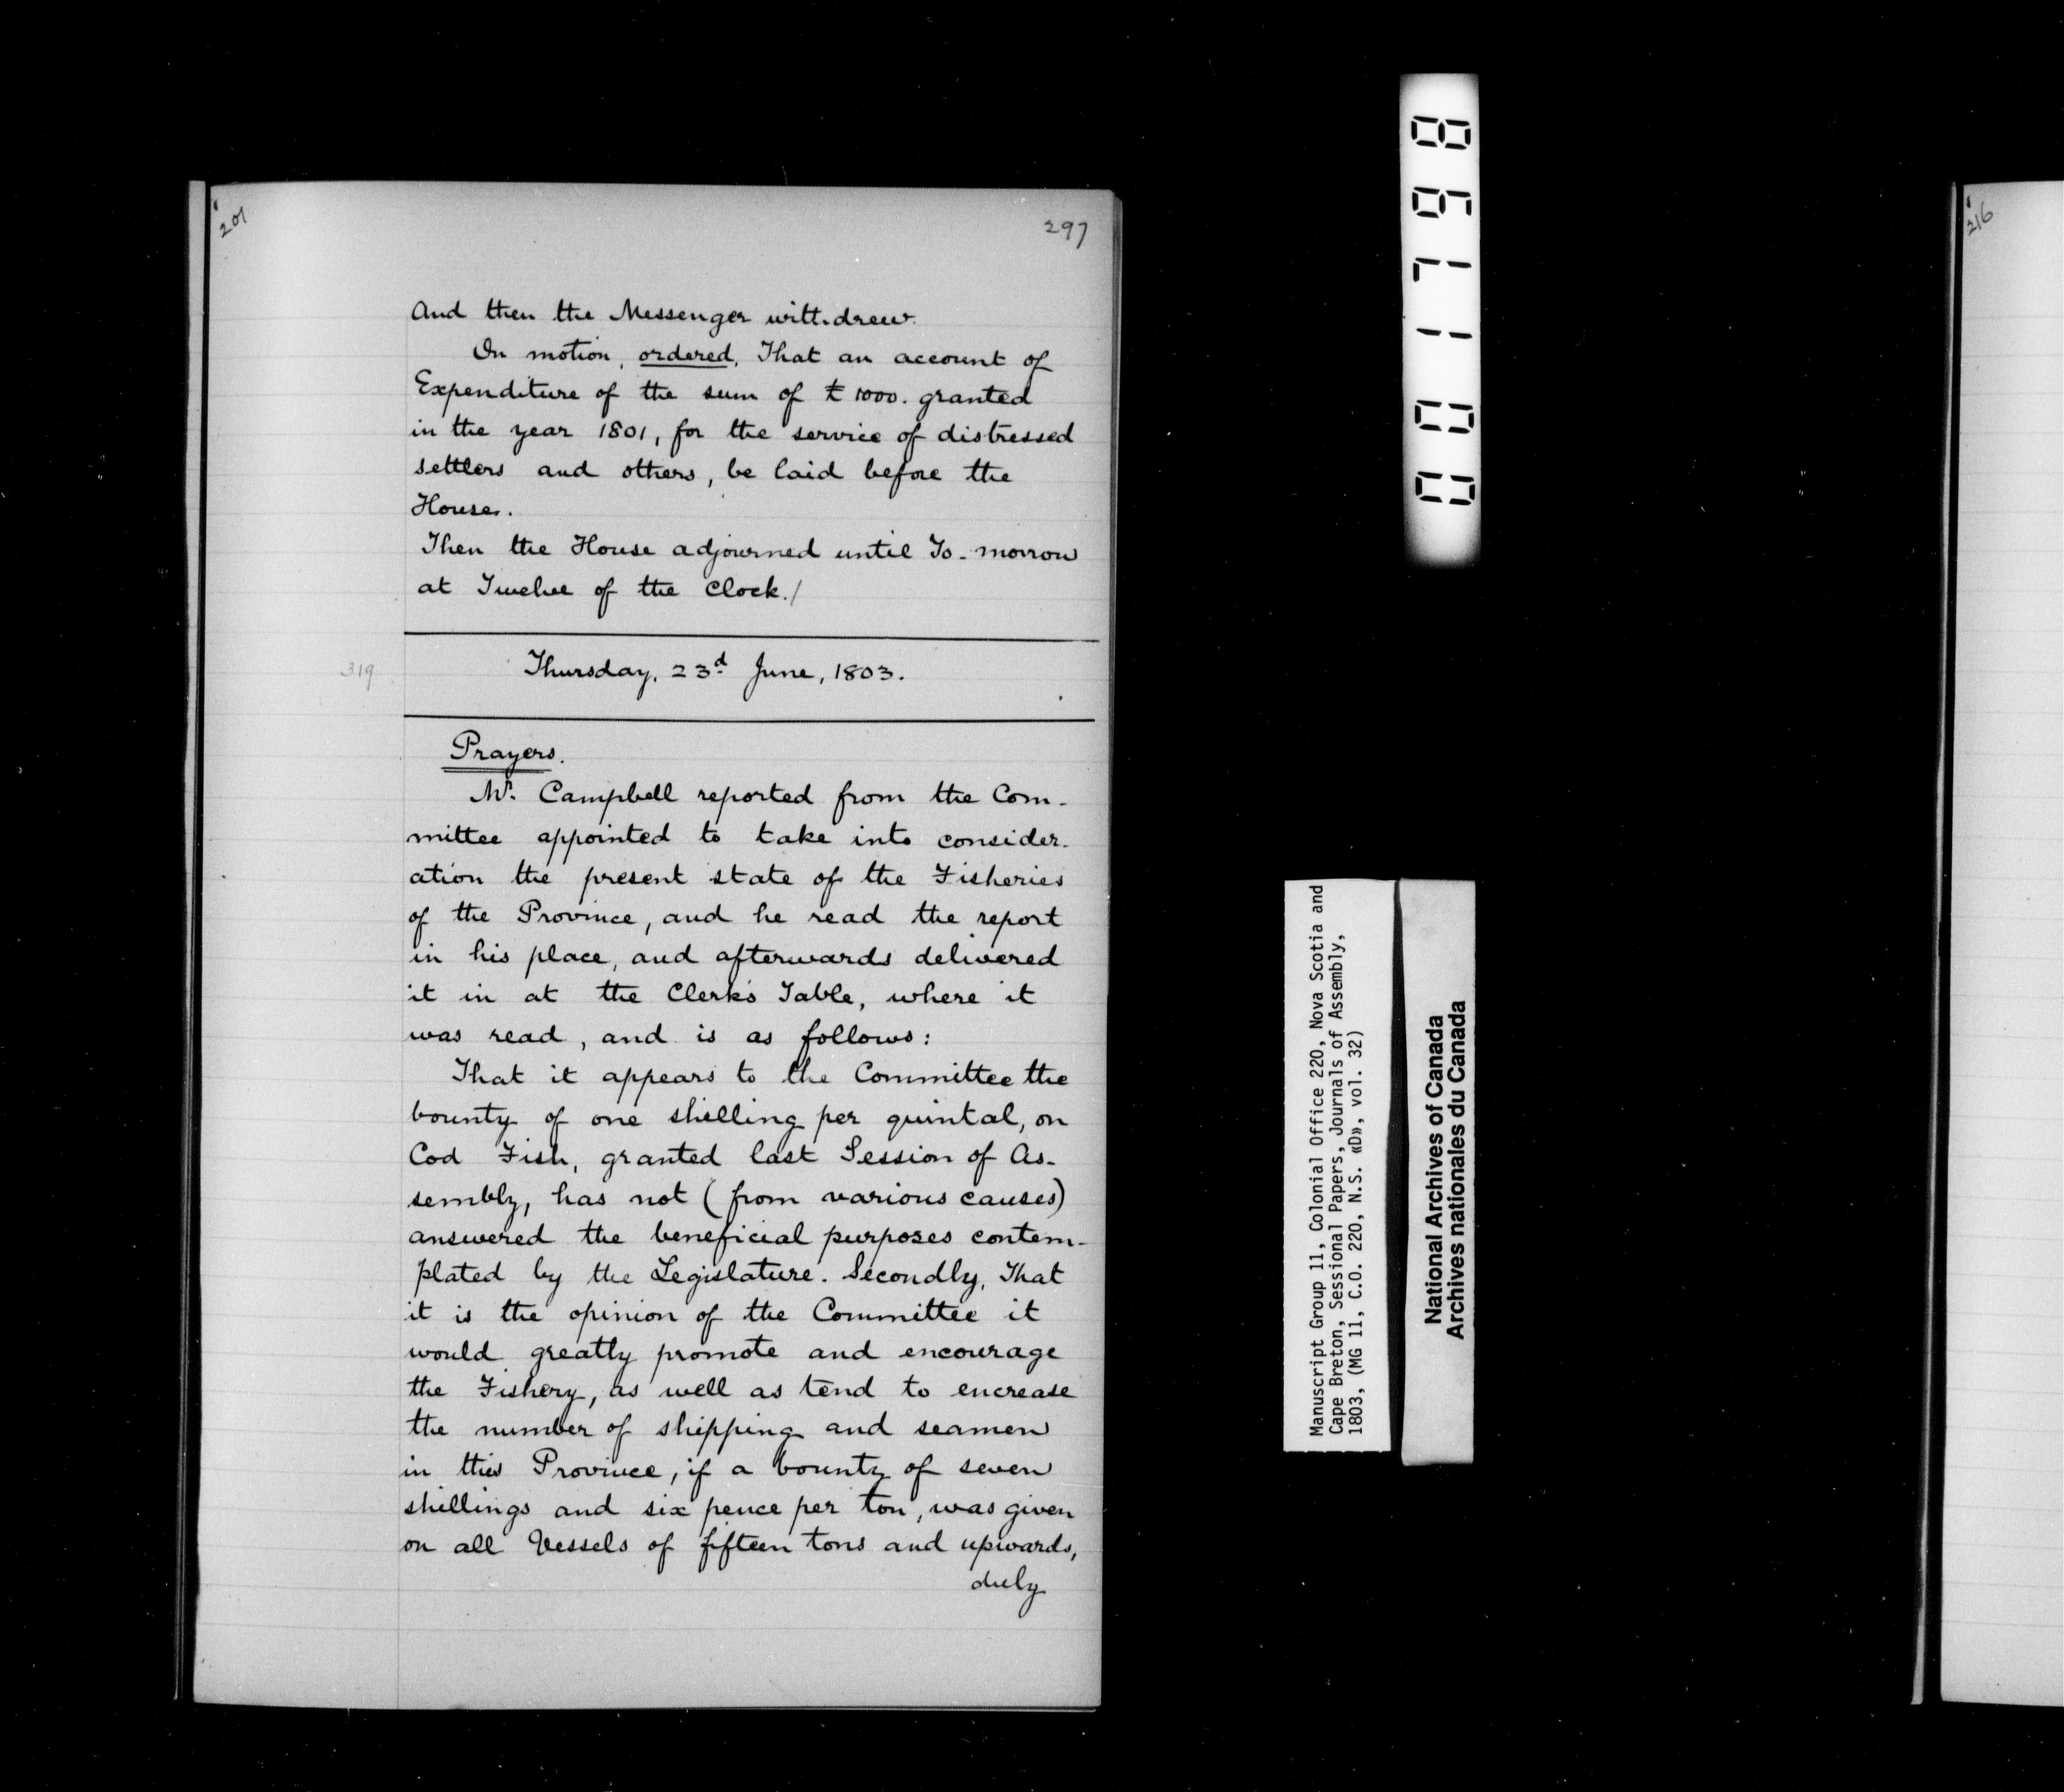 201
297
And then the Messenger withdrew.
On motion, ordered, That an account of
Expenditure of the sum of £1000. granted
in the year 1801, for the service of distressed
settlers and others, be laid before the
House.
Then the House adjourned until To-morrow
at Twelve of the Clock./
319
Thursday, 23d June, 1803.
Prayers.
Mr. Campbell reported from the Com-
mittee appointed to take into consider-
ation the present state of the Fisheries
of the Province, and he read the report
in his place, and afterwards delivered
it in at the Clerk's Table, where it
was read, and is as follows:
That it appears to the Committee the
bounty of one shilling per quintal, on
Cod Fish, granted last Session of As-
sembly, has not (from various causes)
answered the beneficial purposes contem-
plated by the Legislature. Secondly, That
it is the opinion of the Committee it
would greatly promote and encourage
the Fishery, as well as tend to encrease
the number of shipping and seamen
in this Province, if a bounty of seven
shillings and six pence per ton, was given
on all Vessels of fifteen tons and upwards,
duly
001798
Manuscript Group 11, Colonial Office 220, Nova Scotia and
Cape Breton, Sessional Papers, Journals of Assembly,
1803, (MG 11, C.O. 220, N.S. «D», vol. 32)
National Archives of Canada
Archives nationales du Canada
216